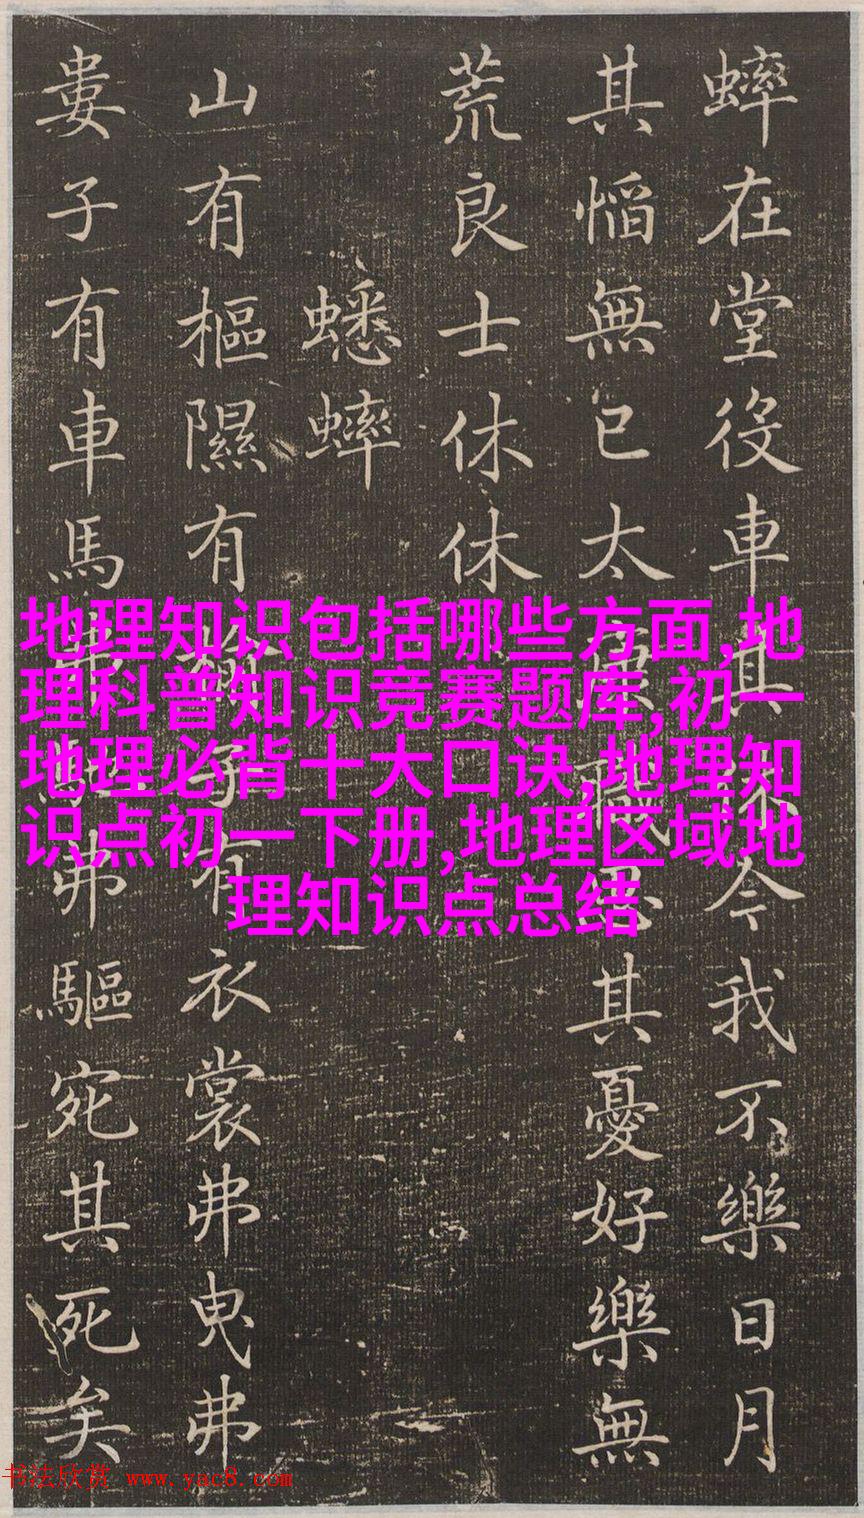 蟀在堂役車其休今我不樂日月
其慆無已太康職思其憂好樂無
荒良士休休
蟋蟀
山有樞隰有榆子有衣裳弗曳弗
婁子有車馬弗馳弗驅宛其死矣
地理知识包括哪些方面,地
理科普知识竞赛题库,初一
地理必背十大口诀,地理知
识点初一下册,地理区域地
理知识点总结
书法欣赏 www.yac8.com